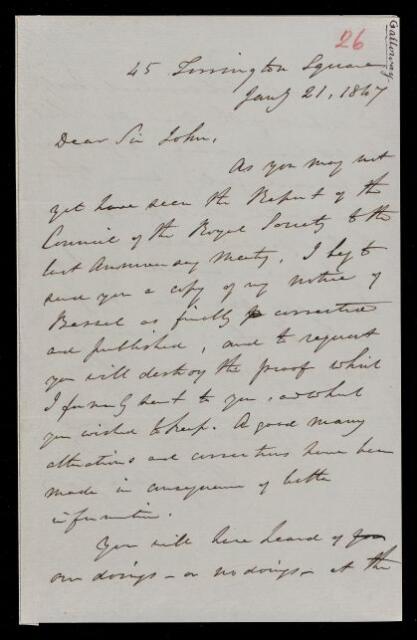 26
Galloway
45 Torrington Square
Jany 21, 1847
Dear Sir John,
As you may not
yet have seen the Report of the
Council of the Royal Society to the
last Anniversary Meeting, I beg to
send you a copy of my notice of
Bessel as finally corrected
and published, and to request
you will destroy the proof which
I formerly sent to you, & which
you wished to keep. A good many
alterations and corrections have been
made in consequence of better
information.
You will have heard of
our doings – or no doings – at the